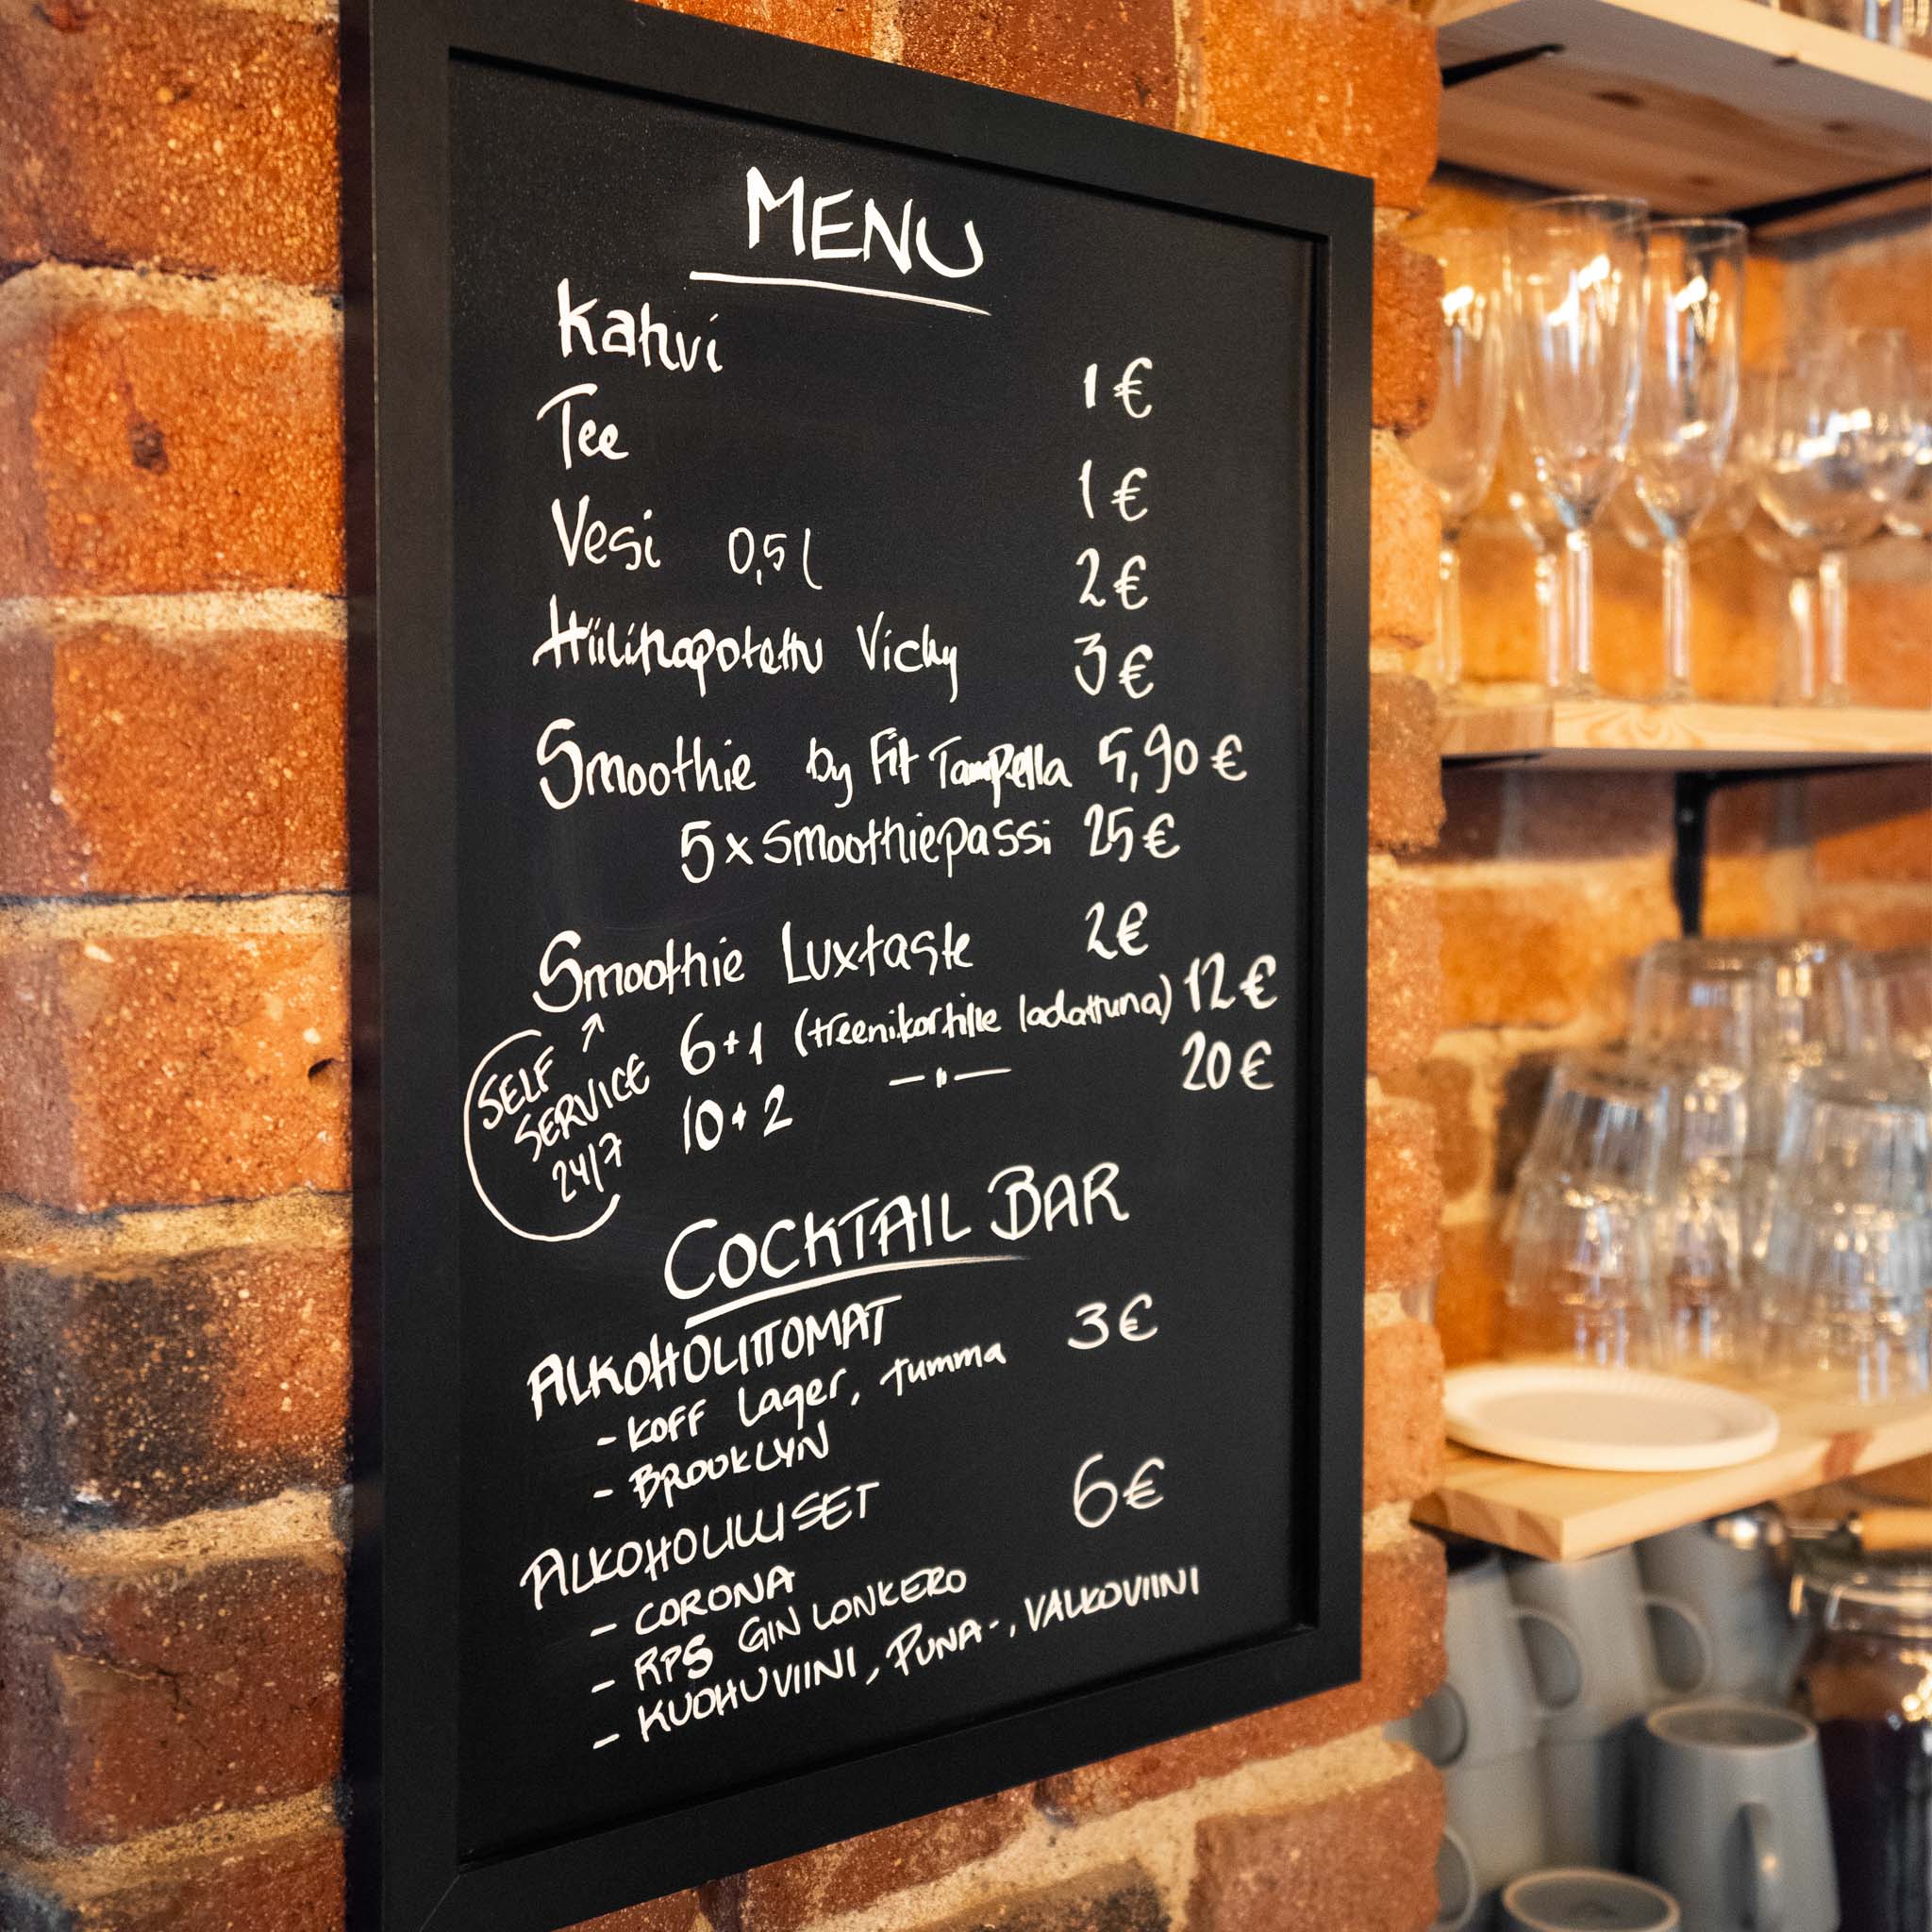 MENU
Kahvi 1€
Tee 1€
Vesi 0,5 l 2€
Hiilihapotettu Vichy 3€
Smoothie by Fit Tampella 5,90€
5x smoothiepassi 25€
Smoothie Luxtaste 2€
6+1 (treenikortille ladattuna) 12€
10+2 —"— 20€
SELF
SERVICE
24/7
COCKTAIL BAR
ALKOHOLITTOMAT 3€
- Koff Lager, tumma
- BROOKLYN
ALKOHOLILLISET 6€
- CORONA
- RPS GIN LONKERO
- KUOHUVIINI, PUNA-, VALKOVIINI